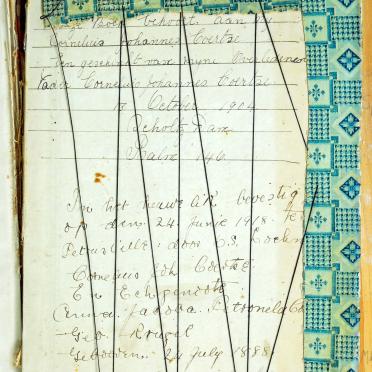 Boek behoort aan my
Cornelius Johannes Coertze
Een geschenk van myne Overledenen
Vader Cornelius Johannes Coertze
17 October 1904
Psalm 146
In het huwelik bevestig
op den 24 Junie 1918 te
Petrusville door DS.
Cornelius Joh Coertze
En Echgenoote
Anna Jacoba Petronela Co
Geb Krugel
Geboren 24 July 1888